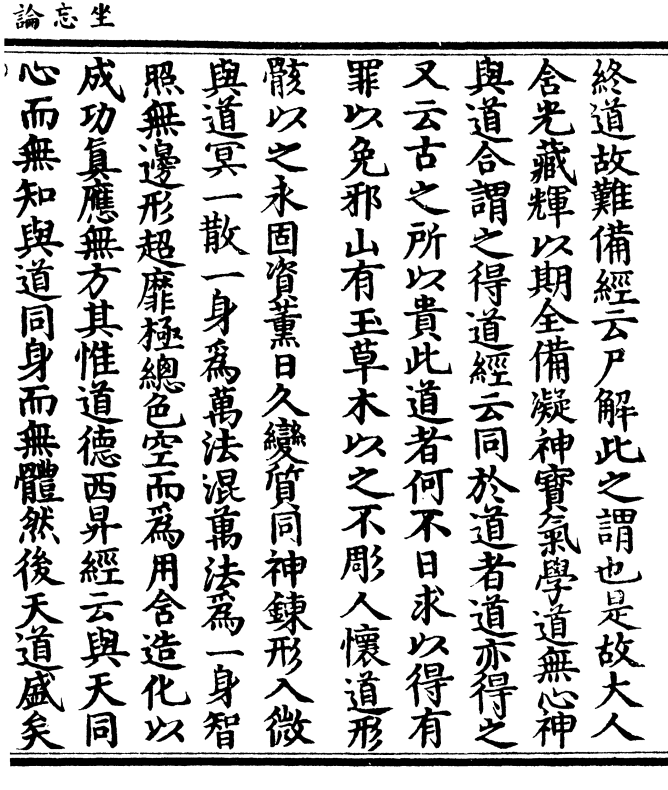 坐忘論
終道故難備經云尸解此之謂也是故大人
含光藏輝以期全備凝神寶氣學道無心神
與道合謂之得道經云同於道者道亦得之
又云古之所以貴此道者何不日求以得有
罪以免邪山有玉草木以之不彫人懷道形
骸以之永固資薰日久變質同神鍊形入微
與道冥一散一身爲萬法混萬法爲一身智
照無邊形超靡極總色空而爲用含造化以
成功眞應無方其惟道德西昇經云與天同
心而無知與道同身而無體然後天道盛矣